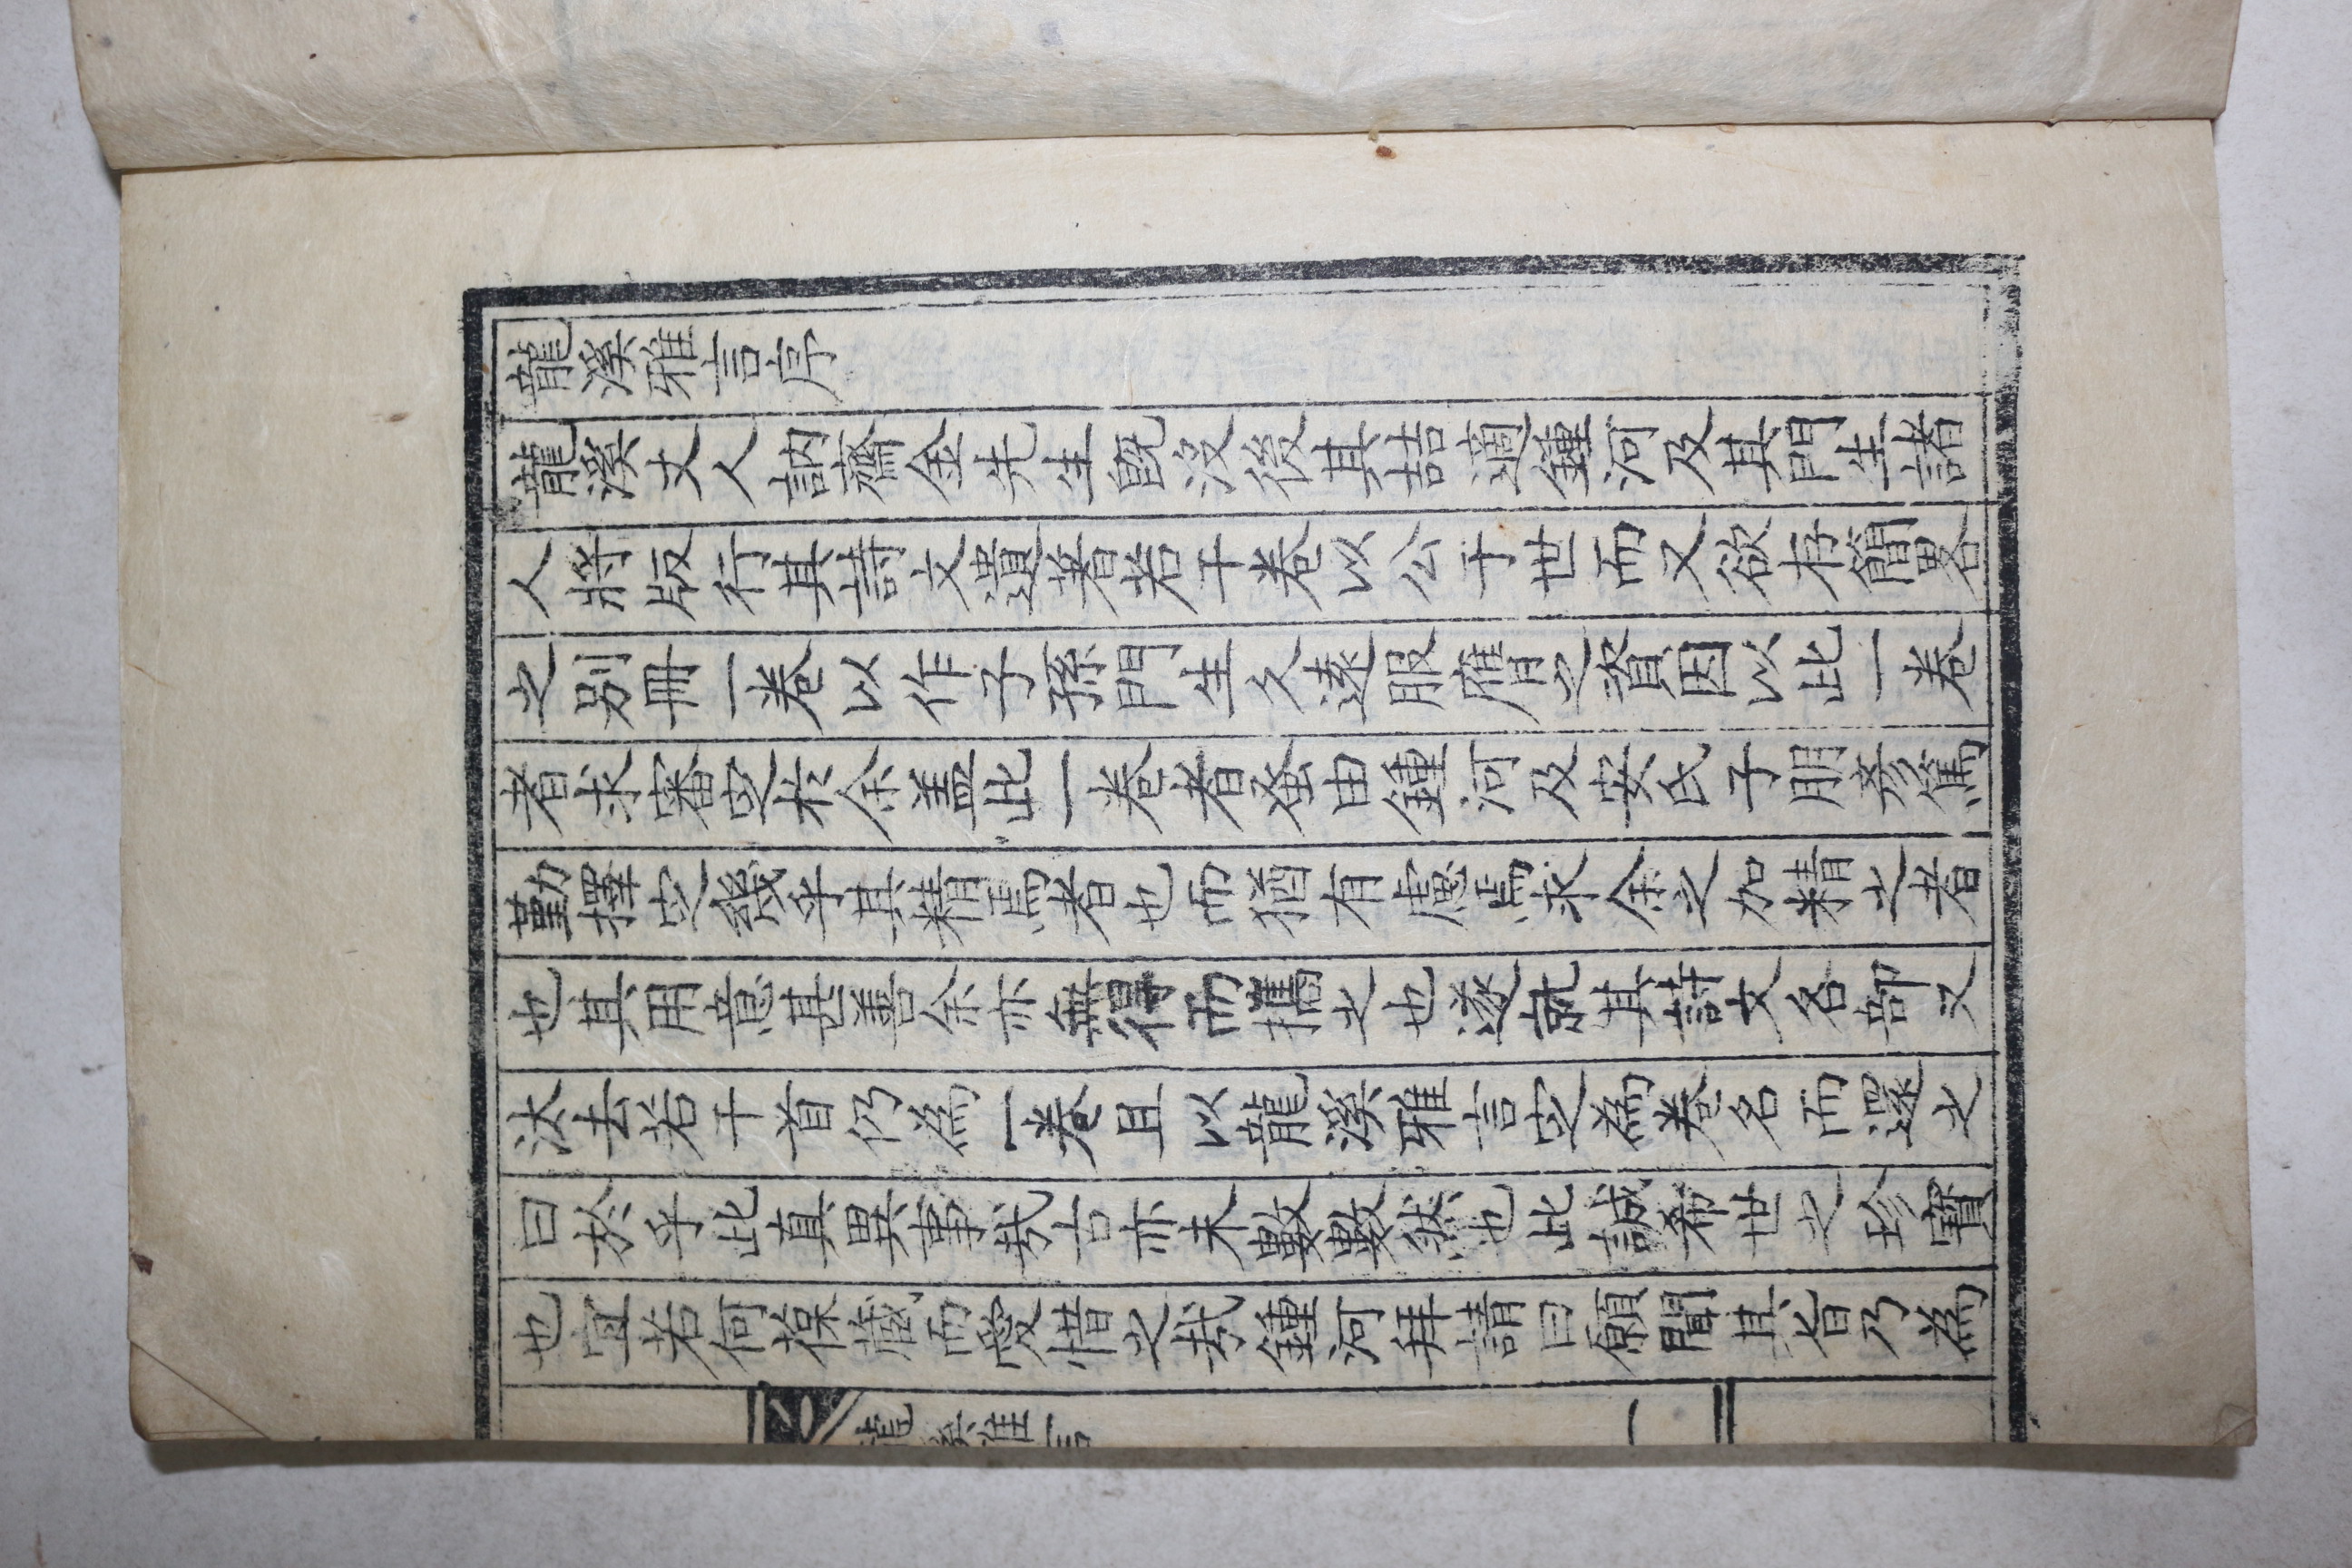 龍溪雅言序
龍溪丈人訥齋金先生旣沒後其喆適鍾河及其門生諸
人將版行其詩文遺著若干卷以公于世而又欲存簡畧
之别冊一卷以作子孫門生久遠服膺之資因以此一卷
者求審定於余盖此一卷者蚤由鍾河及安氏子朋彦篤
勤擇定幾乎其精焉者也而猶有慮焉求余之加精之者
也其用意甚善余亦無得而攜之也遂就其詩文各部又
汰去若干首仍為一卷且以龍溪雅言定為卷名而還之
曰於乎此真異事㢤古亦未數數然也此誠希世之珍寶
也宜若何葆蔵而愛惜之㢤鍾河拜請曰願聞其旨乃為
龍溪雅言
一